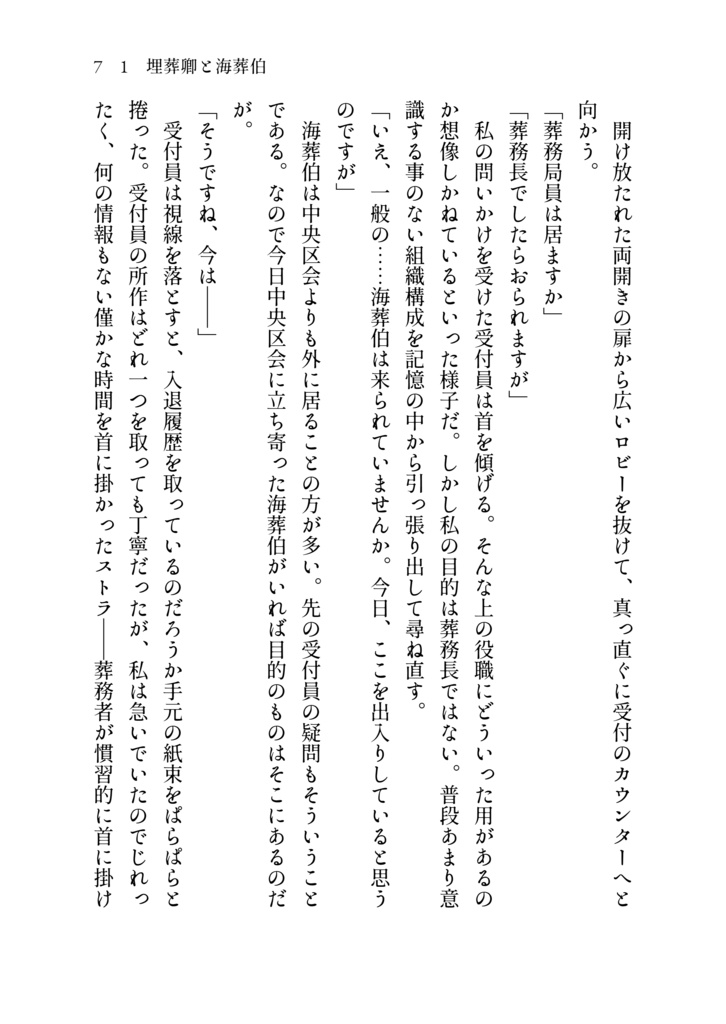 7　1　埋葬卿と海葬伯
　開け放たれた両開きの扉から広いロビーを抜けて、真っ直ぐに受付のカウンターへと
向かう。
「葬務局員は居ますか」
「葬務長でしたらおられますが」
　私の問いかけを受けた受付員は首を傾げる。そんな上の役職にどういった用があるの
か想像しかねているといった様子だ。しかし私の目的は葬務長ではない。普段あまり意
識する事のない組織構成を記憶の中から引っ張り出して尋ね直す。
「いえ、一般の……海葬伯は来られていませんか。今日、ここを出入りしていると思う
のですが」
　海葬伯は中央区会よりも外に居ることの方が多い。先の受付員の疑問もそういうこと
である。なので今日中央区会に立ち寄った海葬伯がいれば目的のものはそこにあるのだ
が。
「そうですね、今は――」
　受付員は視線を落とすと、入退履歴を取っているのだろうか手元の紙束をぱらぱらと
捲った。受付員の所作はどれ一つを取っても丁寧だったが、私は急いでいたのでじれっ
たく、何の情報もない僅かな時間を首に掛かったストラ――葬務者が慣習的に首に掛け